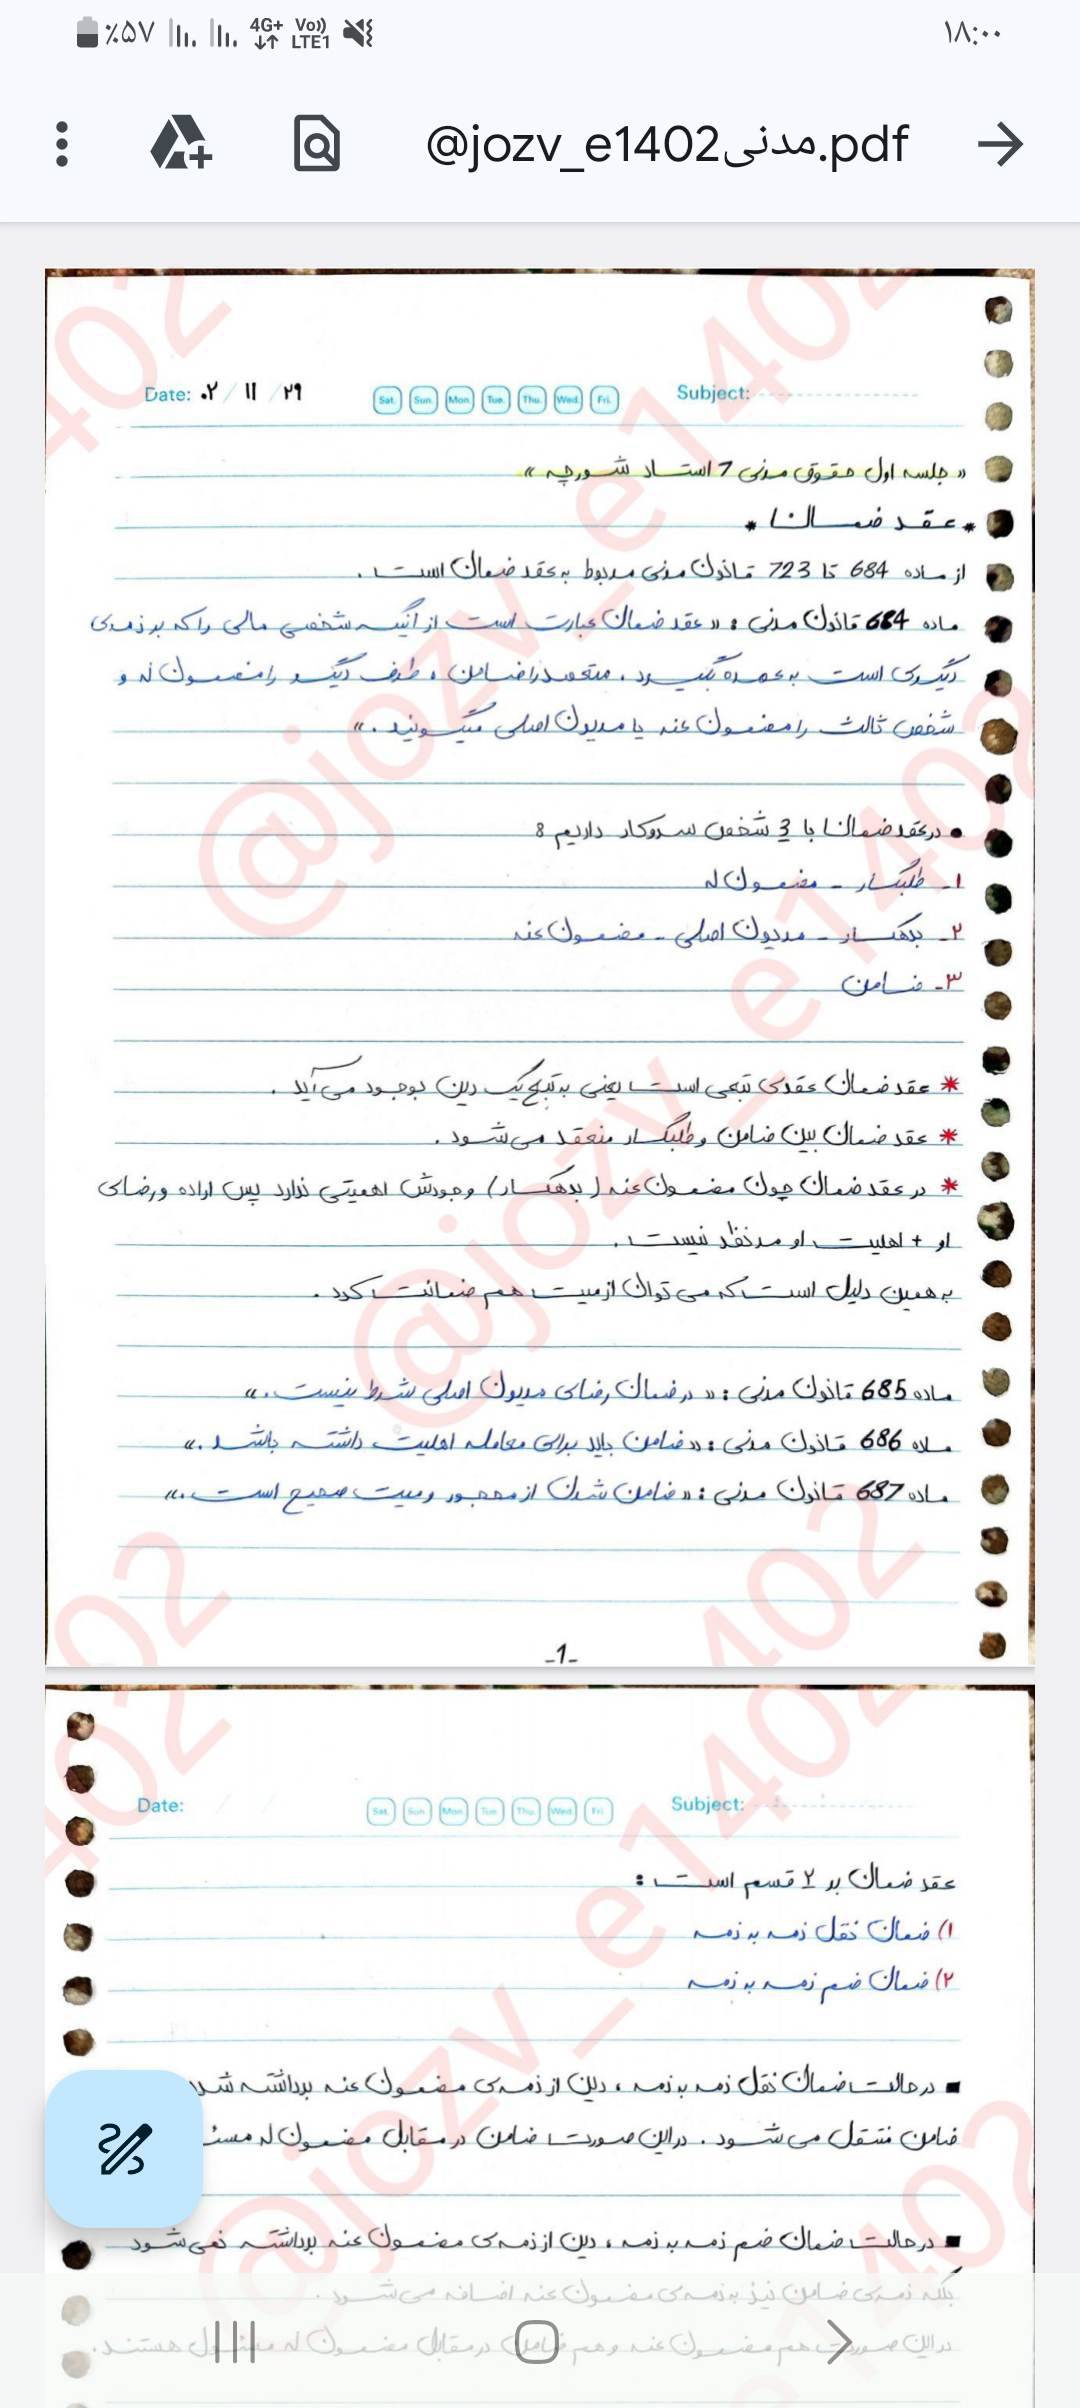 ۱۸:۰۰
Vo)) LTE1 4G+ ٪۵۷
@jozv_e1402مدنی.pdf
Date: ۰۲ / ۱۱ / ۲۹ Sat. Sun. Mon. Tue. Thu. Wed. Fri. Subject:
« جلسه اول حقوق مدنی 7 استاد شورچه »
* عقد ضمان *
از ماده 684 تا 723 قانون مدنی مربوط به عقد ضمان است .
ماده 684 قانون مدنی : « عقد ضمان عبارت است از اینکه شخصی مالی را که بر ذمه‌ی
دیگری است به عهده بگیرد . متعهد را ضامن ، طرف دیگر را مضمون له و
شخص ثالث را مضمون عنه یا مدیون اصلی میگویند . »
● در عقد ضمان با 3 شخص سروکار داریم :
۱- طلبکار - مضمون له
۲- بدهکار - مدیون اصلی - مضمون عنه
۳- ضامن
* عقد ضمان عقدی تبعی است یعنی به تبع یک دین بوجود می آید .
* عقد ضمان بین ضامن و طلبکار منعقد می شود .
* در عقد ضمان چون مضمون عنه ( بدهکار ) وجودش اهمیتی ندارد پس اراده و رضای
او + اهلیت او مدنظر نیست .
به همین دلیل است که می توان از میت هم ضمانت کرد .
ماده 685 قانون مدنی : « در ضمان رضای مدیون اصلی شرط نیست . »
ماده 686 قانون مدنی : « ضامن باید برای معامله اهلیت داشته باشد . »
ماده 687 قانون مدنی : « ضامن شدن از محجور و میت صحیح است . »
-1-
Date: / / Sat. Sun. Mon. Tue. Thu. Wed. Fri. Subject:
عقد ضمان بر ۲ قسم است :
۱) ضمان نقل ذمه به ذمه
۲) ضمان ضم ذمه به ذمه
■ در حالت ضمان نقل ذمه به ذمه ، دین از ذمه‌ی مضمون عنه برداشته شده
ضامن منتقل می شود . در این صورت ضامن در مقابل مضمون له
■ در حالت ضمان ضم ذمه به ذمه ، دین از ذمه‌ی مضمون عنه برداشته نمی شود
بلکه ذمه‌ی ضامن نیز به ذمه‌ی مضمون عنه اضافه می شود .
در این صورت هم مضمون عنه و هم ضامن در مقابل مضمون له مسئول هستند .
@jozv_e1402